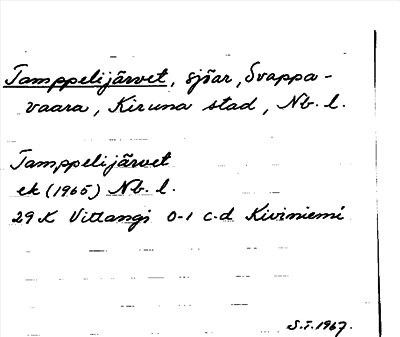 Tamppelijärvet, sjöar, Svappa-
vaara, Kiruna stad, Nb. l.
Tamppelijärvet
ek (1965) Nb. l.
29 K Vittangi 0-1 c-d Kiviniemi
S.I. 1967.